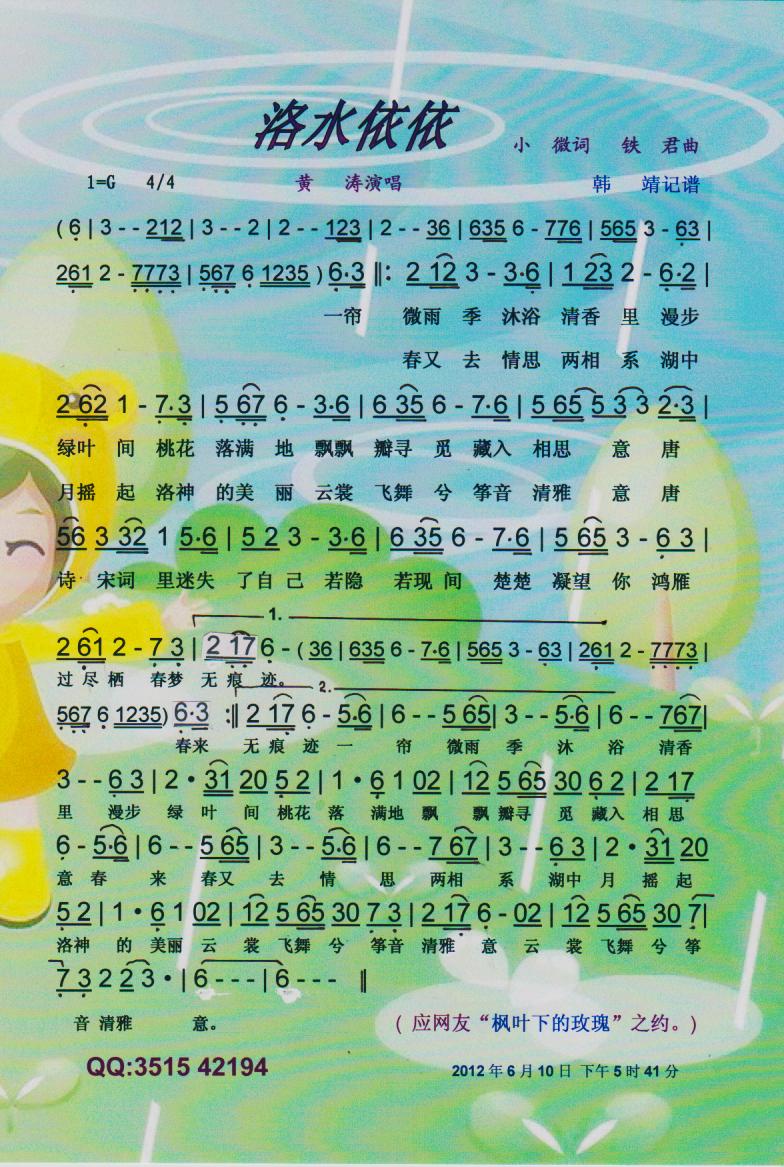 洛水依依
小 微词 铁 君曲
1=G 4/4 黄 涛演唱 韩 靖记谱
( 6 | 3 - - 212 | 3 - - 2 | 2 - - 123 | 2 - - 36 | 635 6 - 776 | 565 3 - 63 |
261 2 - 7773 | 567 6 1235 ) 6·3 ‖: 2 12 3 - 3·6 | 1 23 2 - 6·2 |
一帘 微雨 季 沐浴 清香 里 漫步
春又 去 情思 两相 系 湖中
2 62 1 - 7·3 | 5 67 6 - 3·6 | 6 35 6 - 7·6 | 5 65 5 3 3 2·3 |
绿叶 间 桃花 落满 地 飘飘 瓣寻 觅 藏入 相思 意 唐
月摇 起 洛神 的美 丽 云裳 飞舞 兮 筝音 清雅 意 唐
56 3 32 1 5·6 | 5 2 3 - 3·6 | 6 35 6 - 7·6 | 5 65 3 - 6 3 |
诗 宋词 里迷失 了自 己 若隐 若现 间 楚楚 凝望 你 鸿雁
1.
2 61 2 - 7 3 | 2 17 6 - ( 36 | 635 6 - 7·6 | 565 3 - 63 | 261 2 - 7773 |
过 尽 栖 春梦 无 痕 迹。
2.
567 6 1235) 6·3 :‖ 2 17 6 - 5·6 | 6 - - 5 65 | 3 - - 5·6 | 6 - - 767 |
春来 无 痕 迹 一 帘 微雨 季 沐 浴 清香
3 - - 6 3 | 2 · 31 20 5 2 | 1 · 6 1 02 | 12 5 65 30 6 2 | 2 17
里 漫步 绿 叶 间 桃花 落 满地 飘 飘 瓣寻 觅 藏入 相思
6 - 5·6 | 6 - - 5 65 | 3 - - 5·6 | 6 - - 7 67 | 3 - - 6 3 | 2 · 31 20
意 春 来 春又 去 情 思 两相 系 湖中 月 摇 起
5 2 | 1 · 6 1 02 | 12 5 65 30 7 3 | 2 17 6 - 02 | 12 5 65 30 7 |
洛神 的 美丽 云 裳 飞舞 兮 筝音 清雅 意 云 裳 飞舞 兮 筝
7 3 2 2 3 · | 6 - - - | 6 - - - ‖
音 清雅 意。 ( 应网友“枫叶下的玫瑰”之约。)
QQ:3515 42194 2012 年 6 月 10 日 下午 5 时 41 分